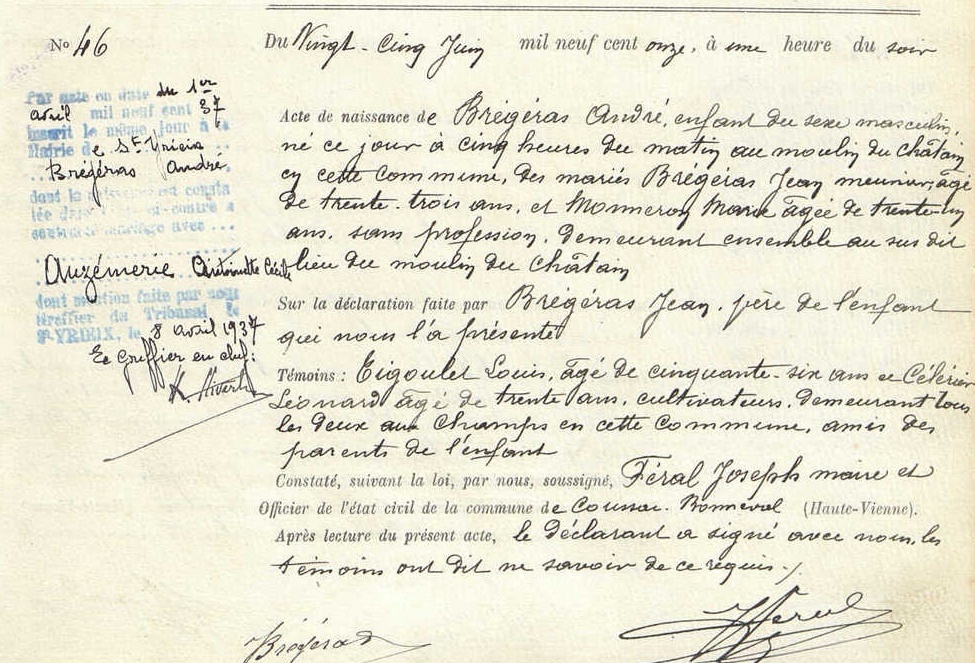 No 46
Du Vingt-Cinq Juin mil neuf cent onze, à une heure du soir
Par acte en date du 1er
avril mil neuf cent 37
inscrit le même jour à la
Mairie de St Yrieix
Brégéras André
dont la naissance est consta
tée dans l'acte ci-contre a
contracté mariage avec ...
Auzémerie Antoinette Cécile
dont mention faite par nous
Greffier du Tribunal de
St-YRIEIX, le 8 avril 1937
Le Greffier en chef:
Acte de naissance de Brégéras André, enfant du sexe masculin,
né ce jour à cinq heures du matin au moulin du châtain
en cette commune, des mariés Brégéras Jean meunier, âgé
de trente-trois ans, et Monneron Marie âgée de trente-un
ans, sans profession, demeurant ensemble au sus dit
lieu du moulin du châtain
Sur la déclaration faite par Brégéras Jean, père de l'enfant
qui nous l'a présenté
Témoins : Eigoulet Louis, âgé de cinquante-six ans et Célérier
Léonard âgé de trente ans, cultivateurs, demeurant tous
les deux aux Champs en cette commune, amis des
parents de l'enfant
Constaté, suivant la loi, par nous, soussigné, Féral Joseph maire et
Officier de l'état civil de la commune de Coussac-Bonneval (Haute-Vienne).
Après lecture du présent acte, le déclarant a signé avec nous, les
témoins ont dit ne savoir de ce requis ./.
Brégéras
Féral